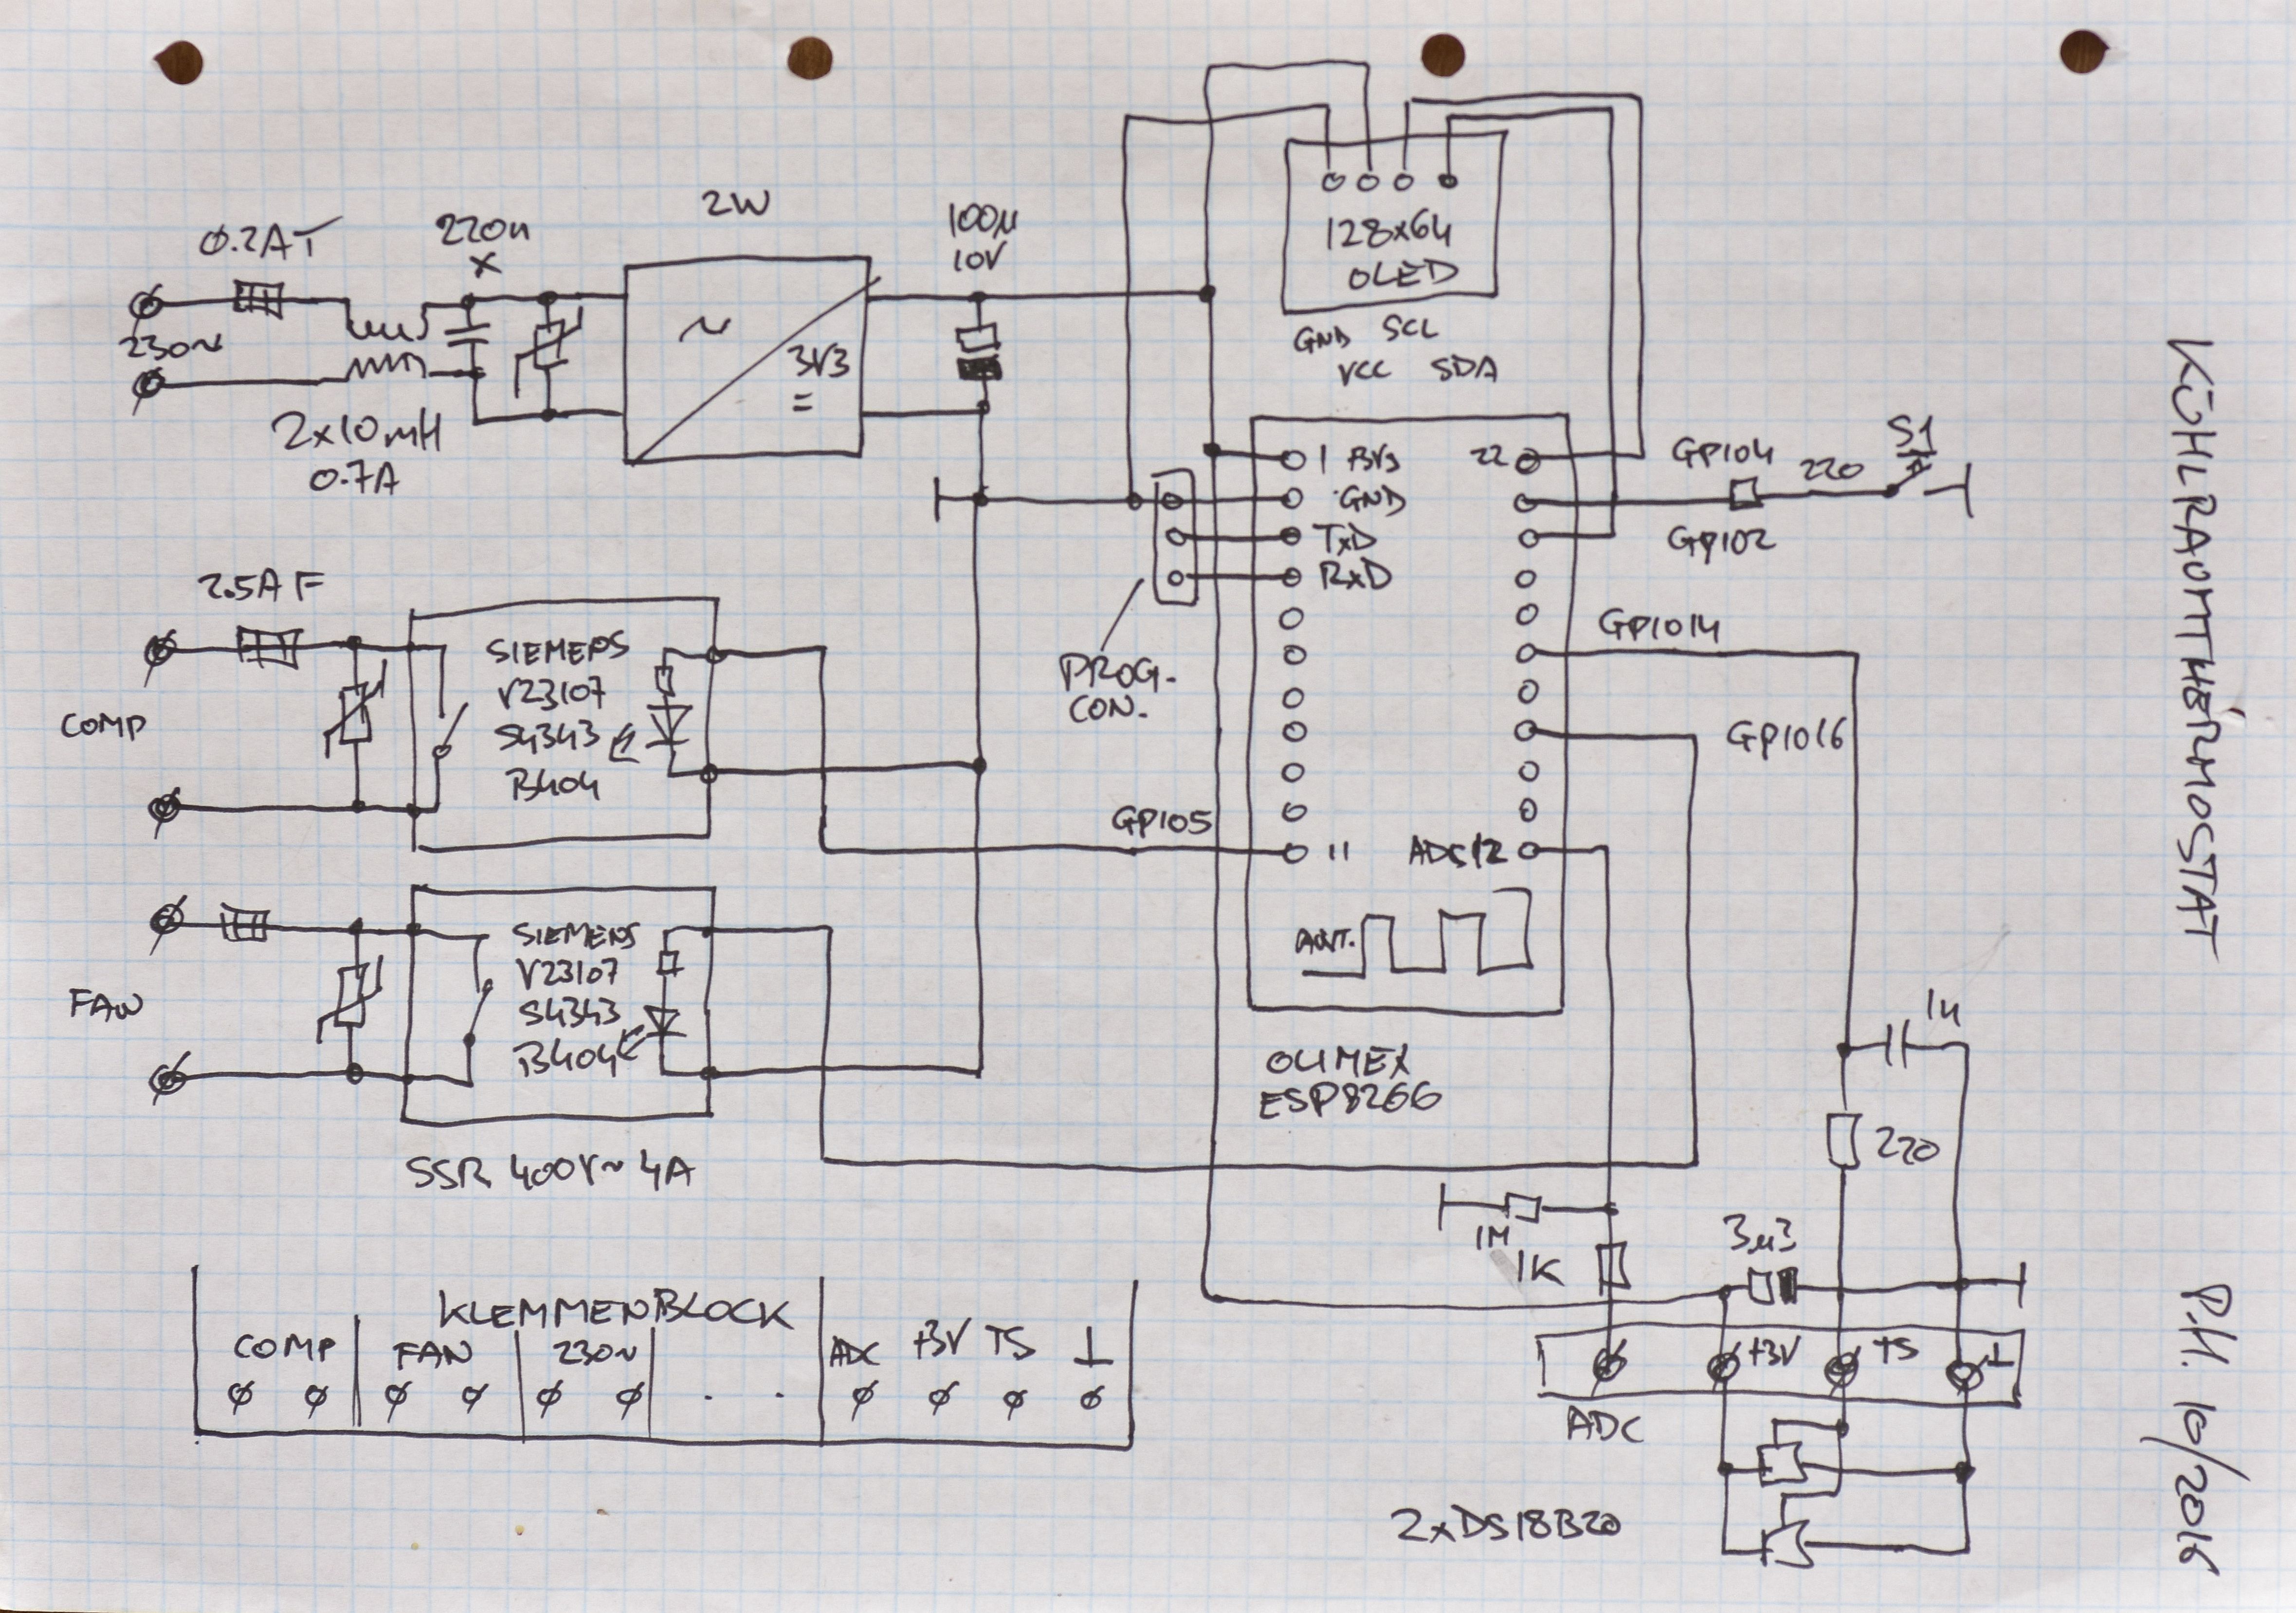 0.2AT
220n
X
230~
2x10mH
0.7A
2W
~
3V3
=
100µ
10V
128x64
OLED
GND SCL
VCC SDA
1 3V3
GND
TxD
RxD
22
11 ADC12
ANT.
OLIMEX
ESP8266
PROG.
CON.
GPIO4
220
S1
GPIO2
GPIO14
GPIO16
GPIO5
2.5A F
COMP
SIEMENS
V23107
S4343
B404
FAN
SIEMENS
V23107
S4343
B404
SSR 400V~ 4A
220
1M
1K
3µ3
+3V TS ⊥
ADC
2xDS18B20
KLEMMENBLOCK
COMP FAN 230~ ADC +3V TS ⊥
KÜHLRAUMTHERMOSTAT
P.H. 10/2016